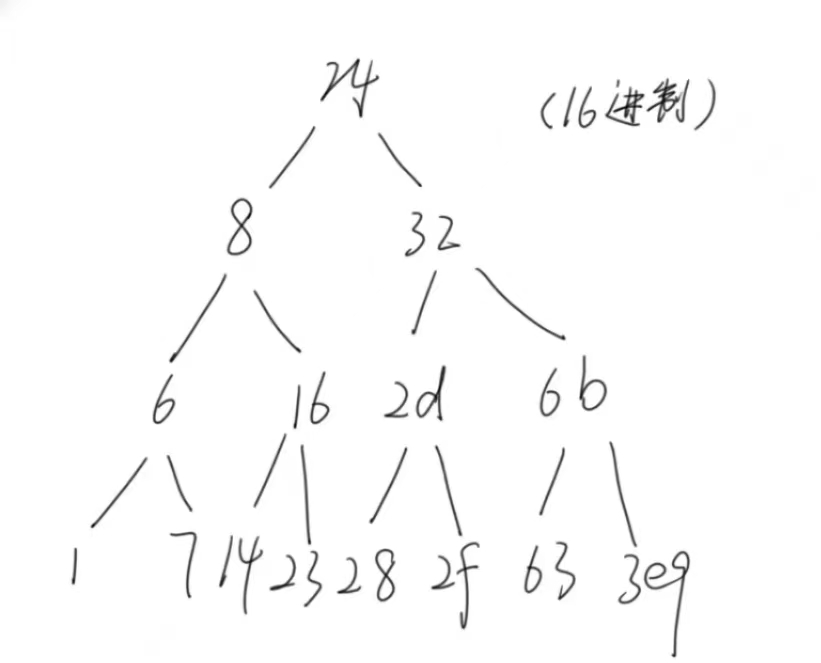 24 (16进制)
8 32
6 16 2d 6b
1 7 14 23 28 2f 63 3e9